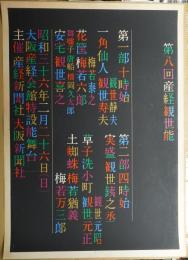 第八回産経観世能
第一部十時始　第二部四時始
観世静夫
一角仙人　観世寿夫　実盛　観世銕之丞
梅若泰之　観世元昭
花筐　梅若六郎　草子洗小町　観世元正
安宅　観世喜之　土蜘蛛　梅若猶義
梅若万三郎
昭和三十六年二月二十六日日
大阪産経会館特設能舞台
主催産経新聞社大阪新聞社